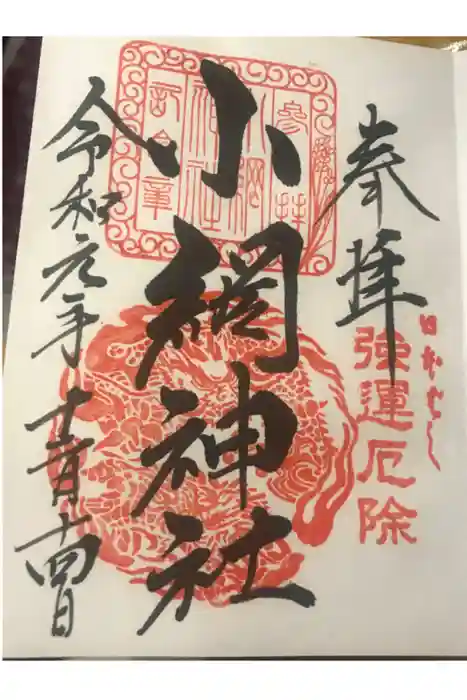 奉拝
日本ばし
強運厄除
小網神社
参拝
小網
神社
記念章
令和元年
十四日